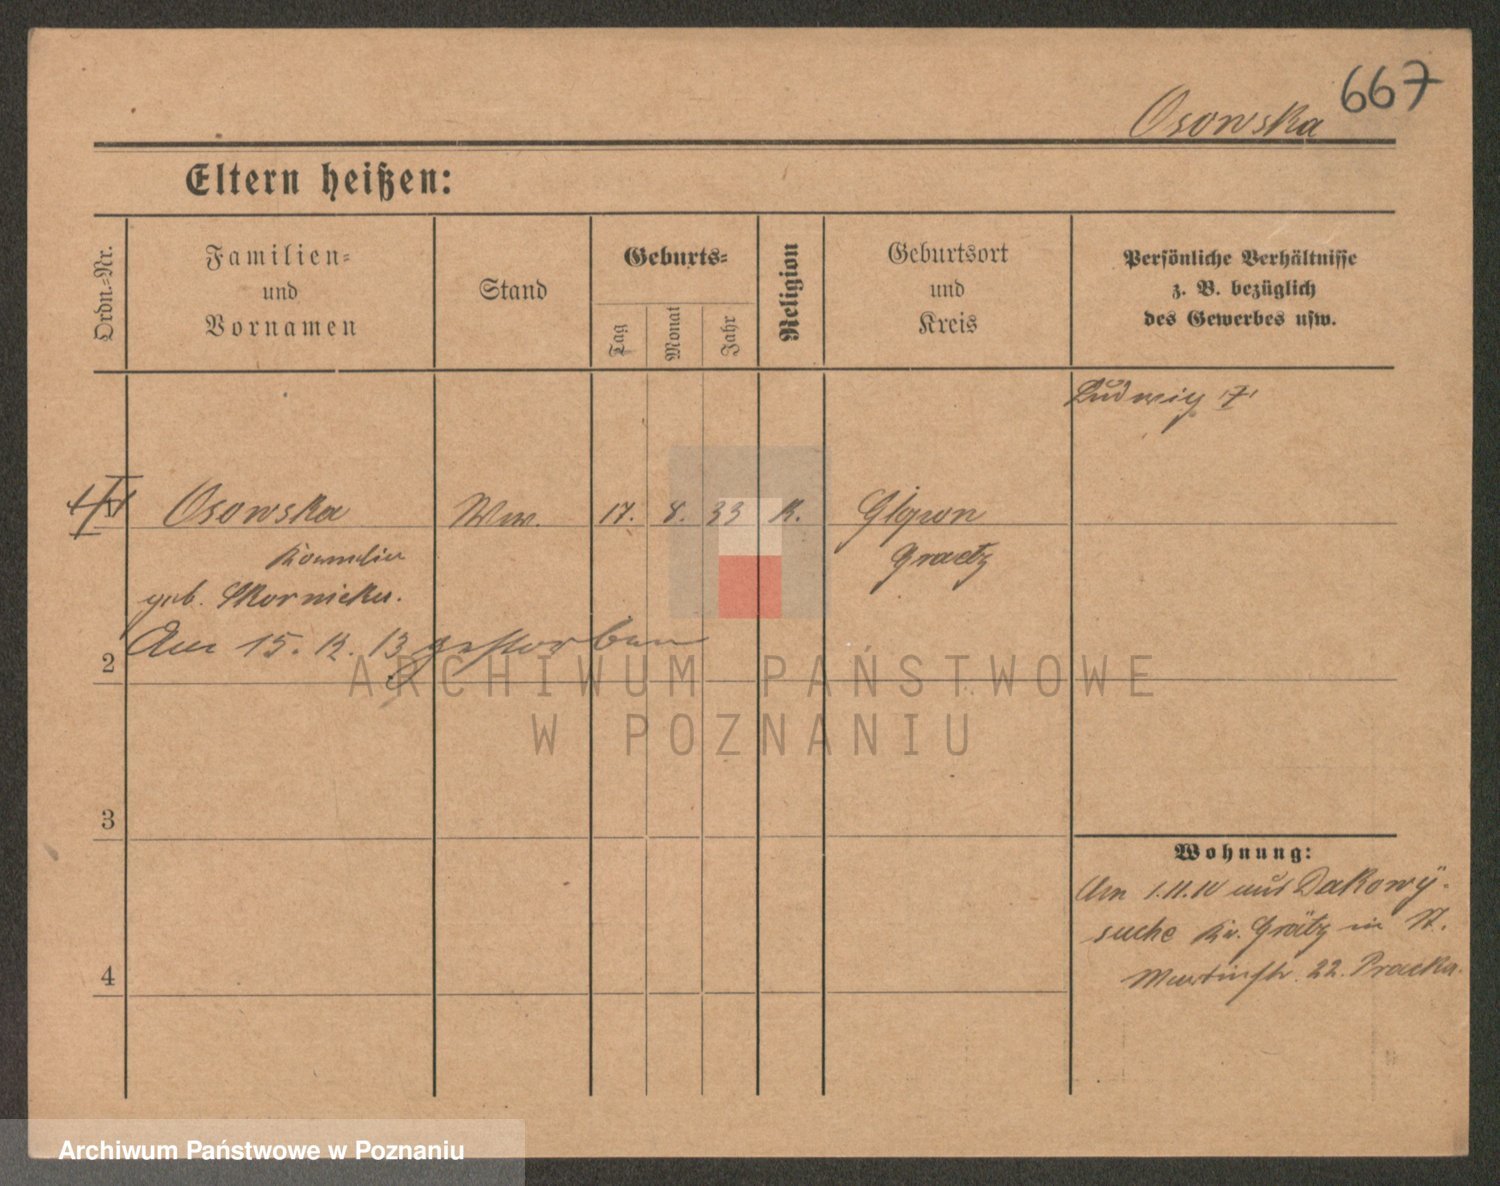 667
Osowska
Eltern heißen:
Ordn.-Nr.
Familien-
und
Vornamen
Stand
Geburts-
Tag
Monat
Jahr
Religion
Geburtsort
und
Kreis
Persönliche Verhältnisse
z. B. bezüglich
des Gewerbes usw.
Ludwig †
Osowska Ww. 17. 8. 33 K.
Graetz
geb. Skornicka.
2 Am 15. 12. 13 gestorben
ARCHIWUM PAŃSTWOWE
W POZNANIU
3
Wohnung:
Am 1.11.10 aus Dakowy-
suche Kr. Grätz in St.
4
Martinstr. 22. Pracka.
Archiwum Państwowe w Poznaniu